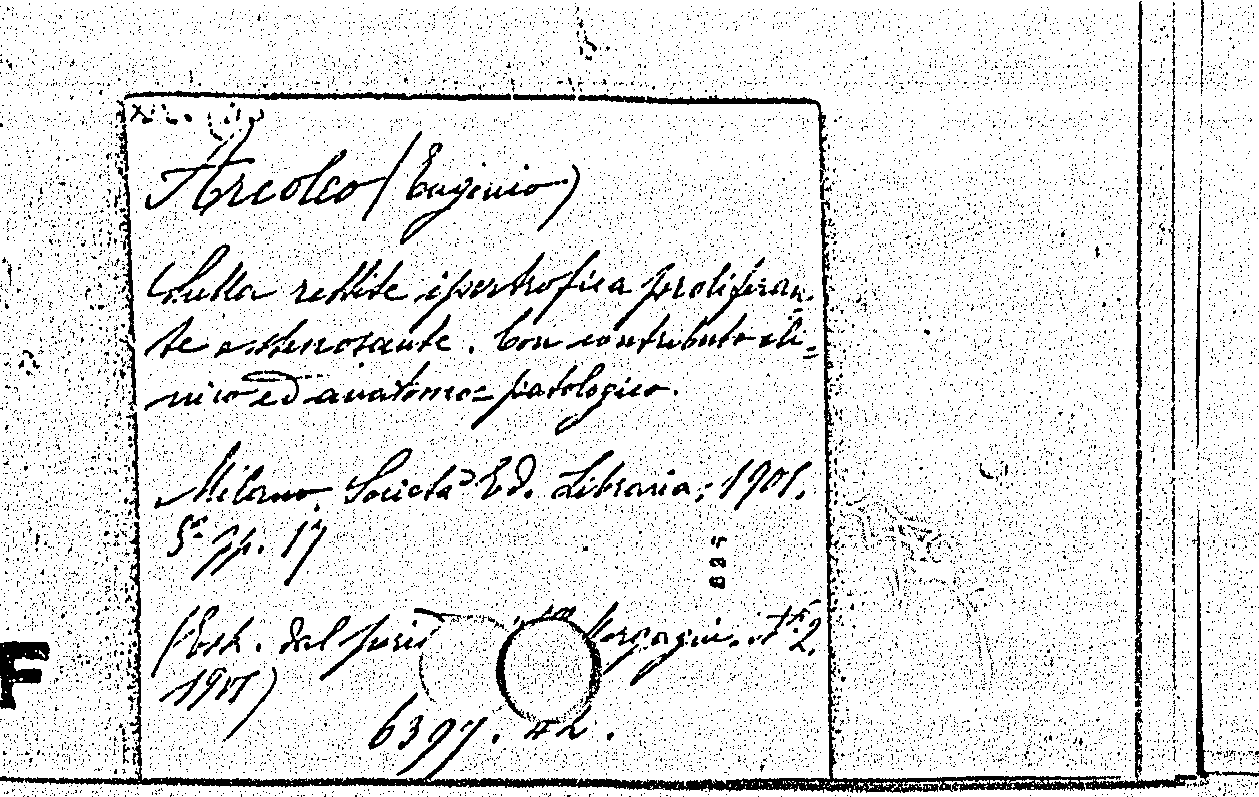 Arcoleo (Eugenio)
Sulla rettite ipertrofica proliferan-
te e stenosante. Con contributo cli=
nico ed anatomo=patologico.
Milano, Società Ed. Libraria, 1901.
8° pp. 17
(Estr. dal Morgagni. N° 2.
1901)
6397. 42.
F